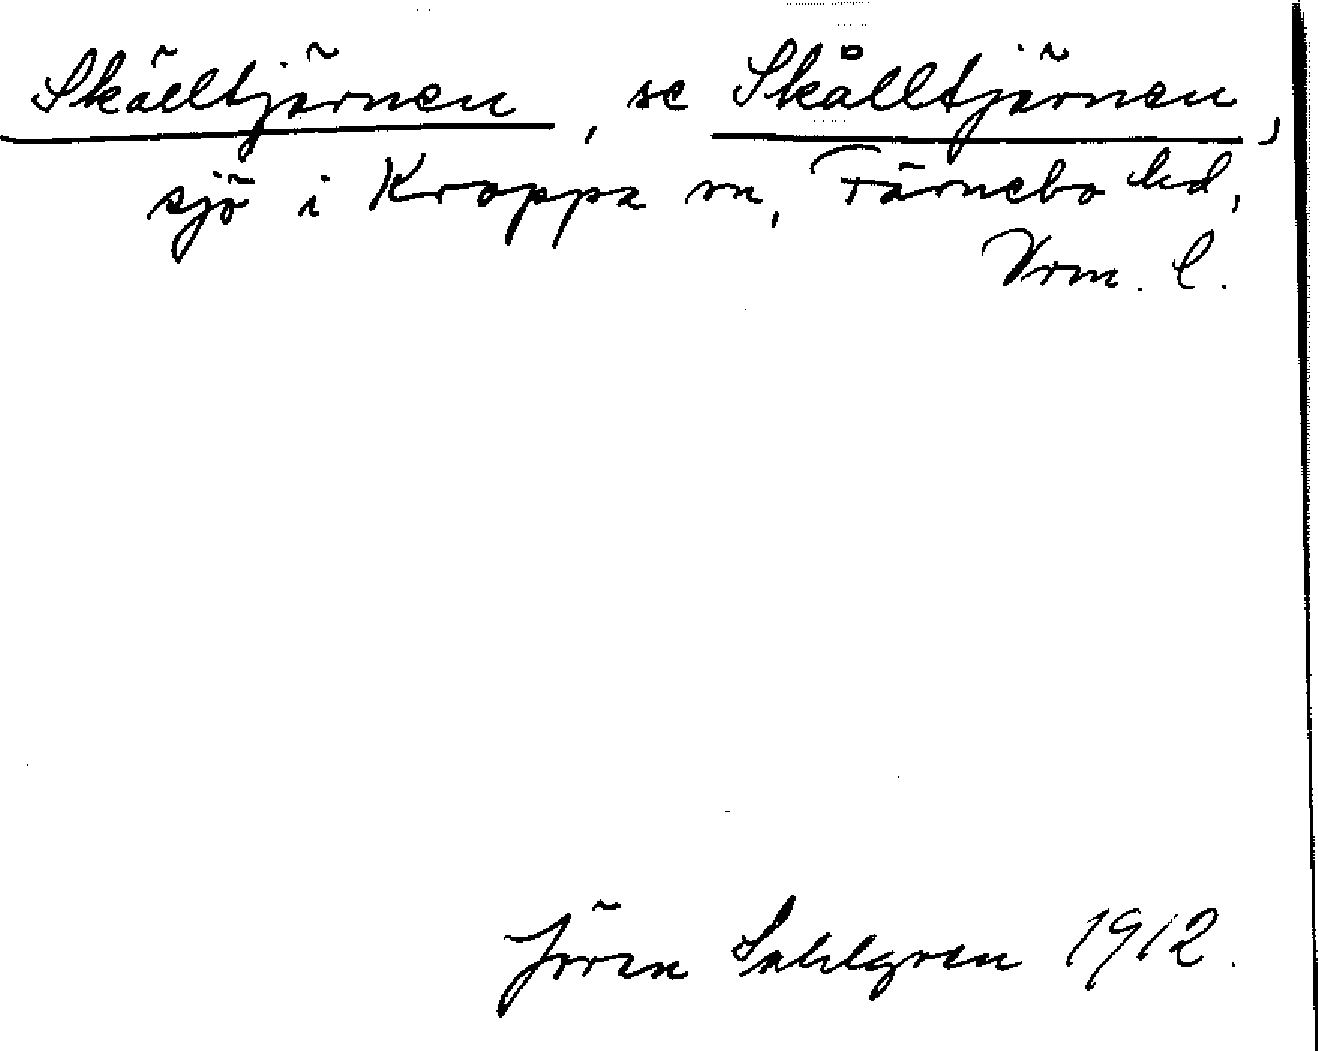 Skälltjärnen, se Skålltjärnen,
sjö i Kroppa sn, Färnebo hd,
Vrm. l.
Jöran Sahlgren 1912.